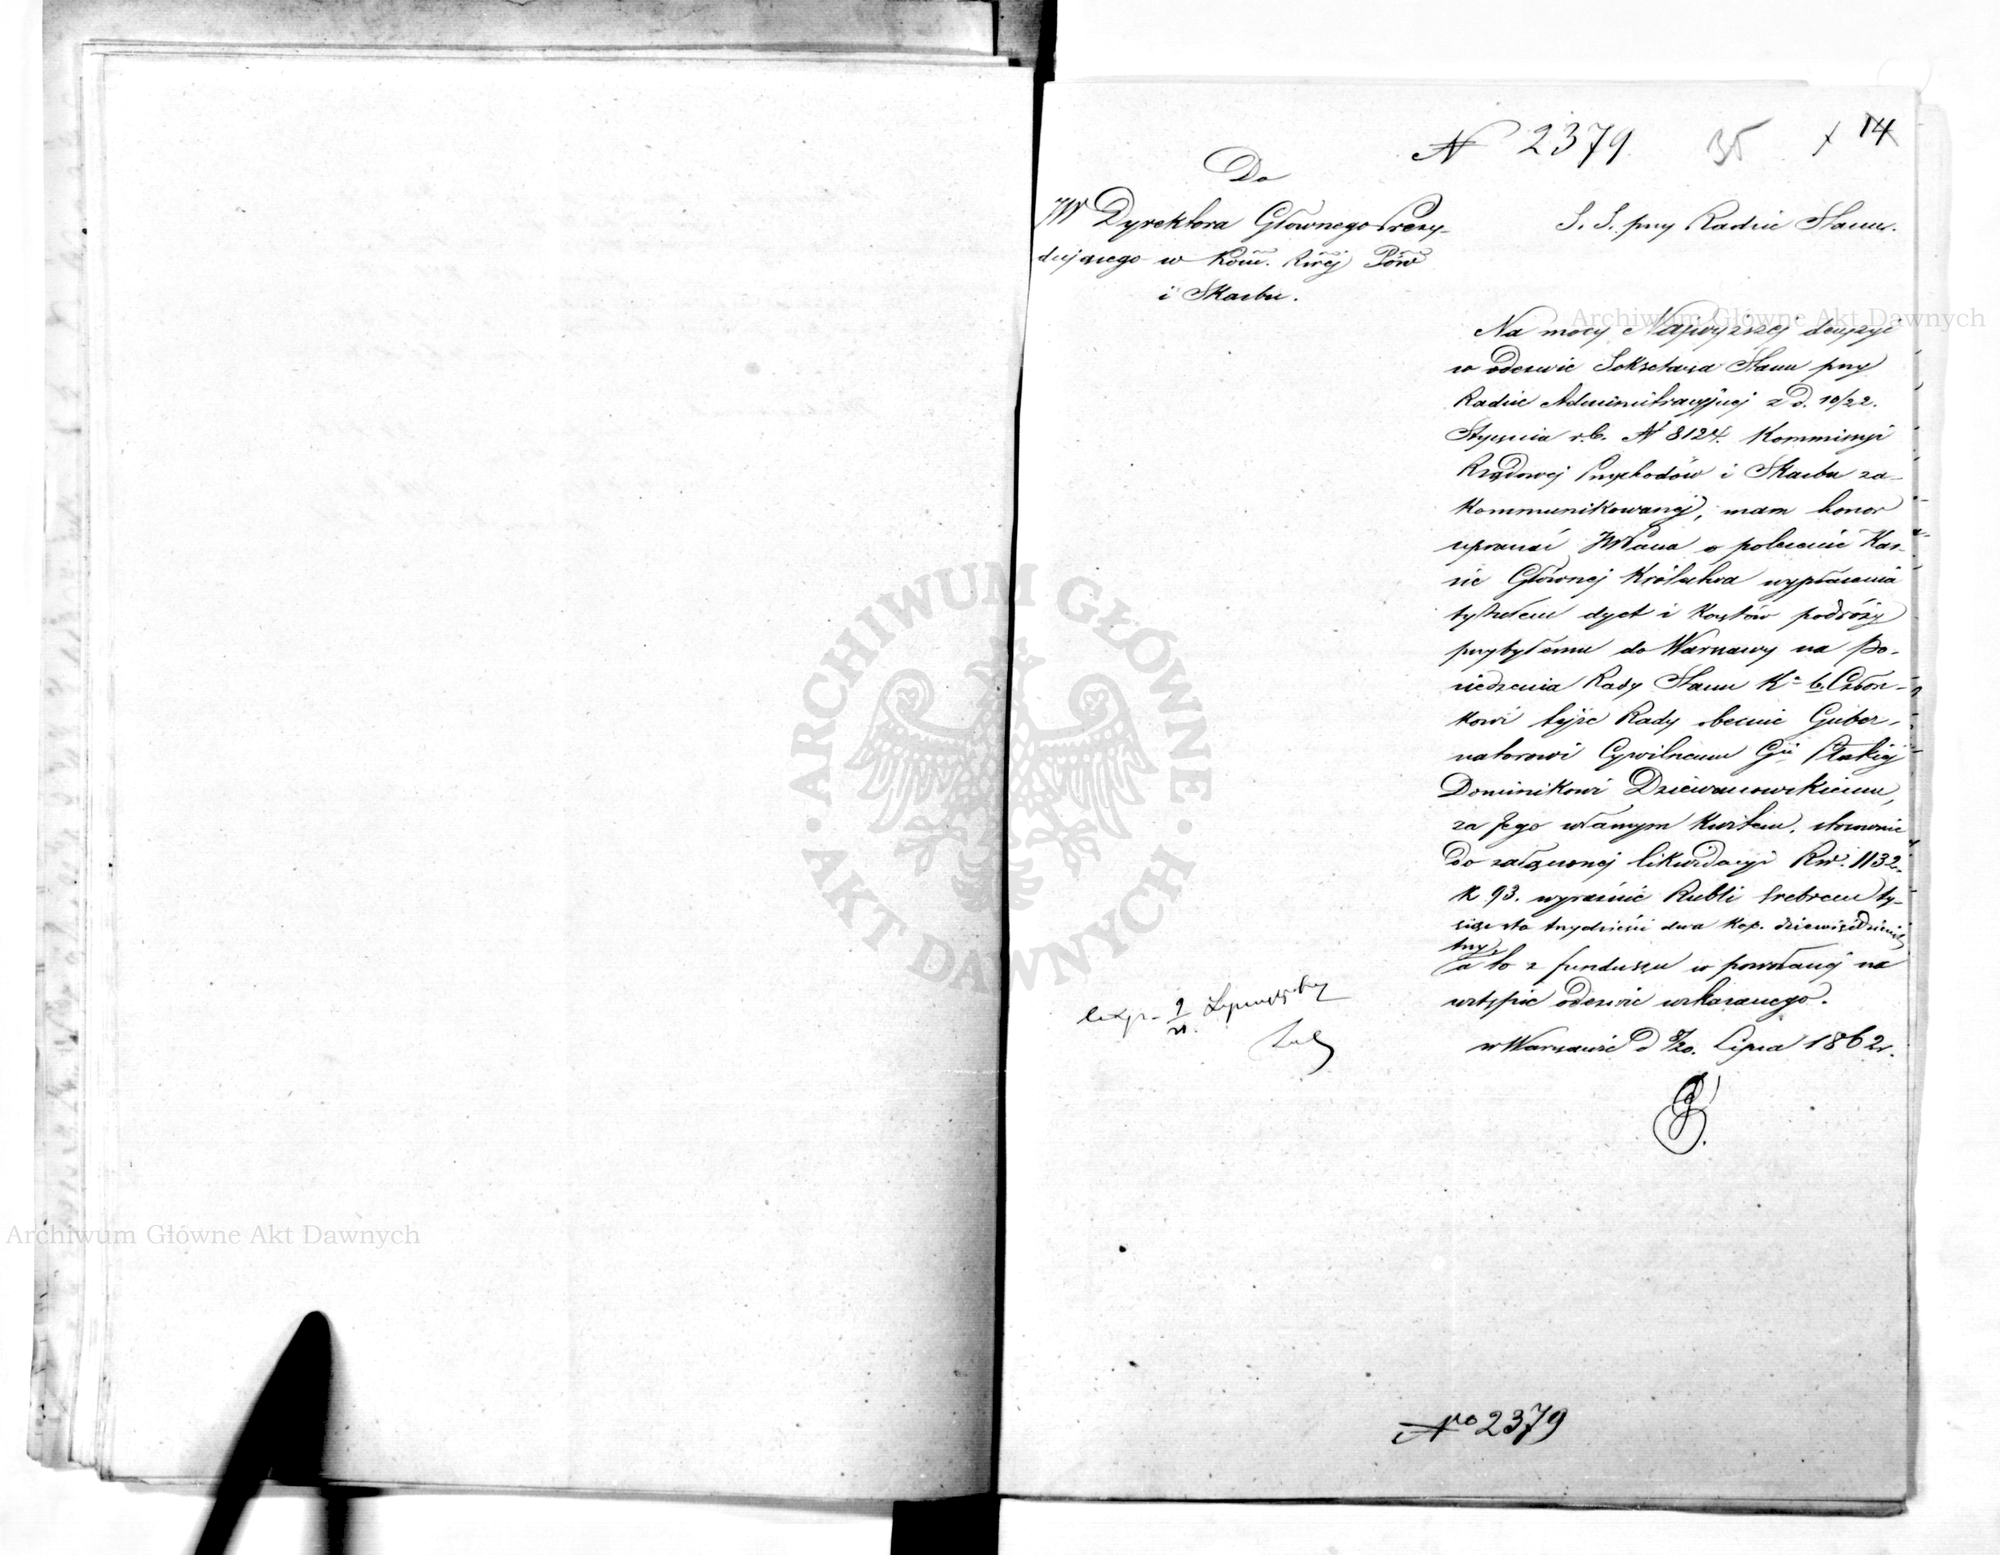 N 2379 35 14
Do
JW Dyrektora Głównego Prezy-
dującego w Kom. Rwéj Pów
i Skarbu.
S. S. przy Radzie Stanu.
Na mocy Najwyższej decyzyi
w odezwie Sekretarza Stanu przy
Radzie Administracyjnej z d. 10/22.
Stycznia r.b. N 8124. Kommissyi
Rządowej Przychodów i Skarbu za-
kommunikowanej, mam honor
uprosić JWPana o polecenie Kas-
sie Głównej Królestwa wypłacenia
tytułem dyet i kosztów podróży
przybyłemu do Warszawy na Po-
siedzenia Rady Stanu Kr b. Człon-
kowi tejże Rady obecnie Guber-
natorowi Cywilnemu Gii Płockiej
Dominikowi Dziewanowskiemu,
za Jego własnym kwitem, stosownie
do załączonej likwidacyi Rsr. 1132.
k 93. wyraźnie Rubli srebrem ty-
siąc sto trzydzieści dwa kop. dziewięćdziesiąt
trzy,
a to z funduszu w powołanej na
wstępie odezwie wskazanego.
w Warszawie d 8/20. Lipca 1862 r.
Exp. 9/21.
No 2379
ARCHIWUM GŁÓWNE
AKT DAWNYCH
Archiwum Główne Akt Dawnych
Archiwum Główne Akt Dawnych